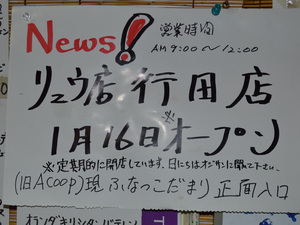 News!
営業時間
AM 9:00～12:00
リュウ店行田店
1月16日オープン
※定期的に開店しています。日にちはオジサンに聞いて下さい。
(旧Acoop)現 ふなっこだまり 正面入口